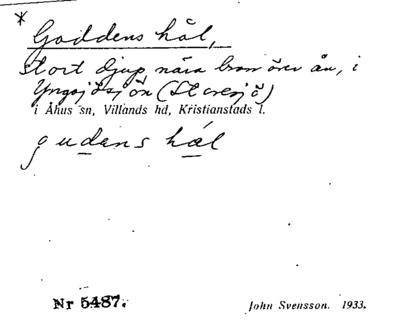 * Goddens hål,
stort djup nära bron över ån, i
Yngsjösjön (Storesjö)
i Åhus sn, Villands hd, Kristianstads l.
gudens hål
Nr 5487. John Svensson. 1933.